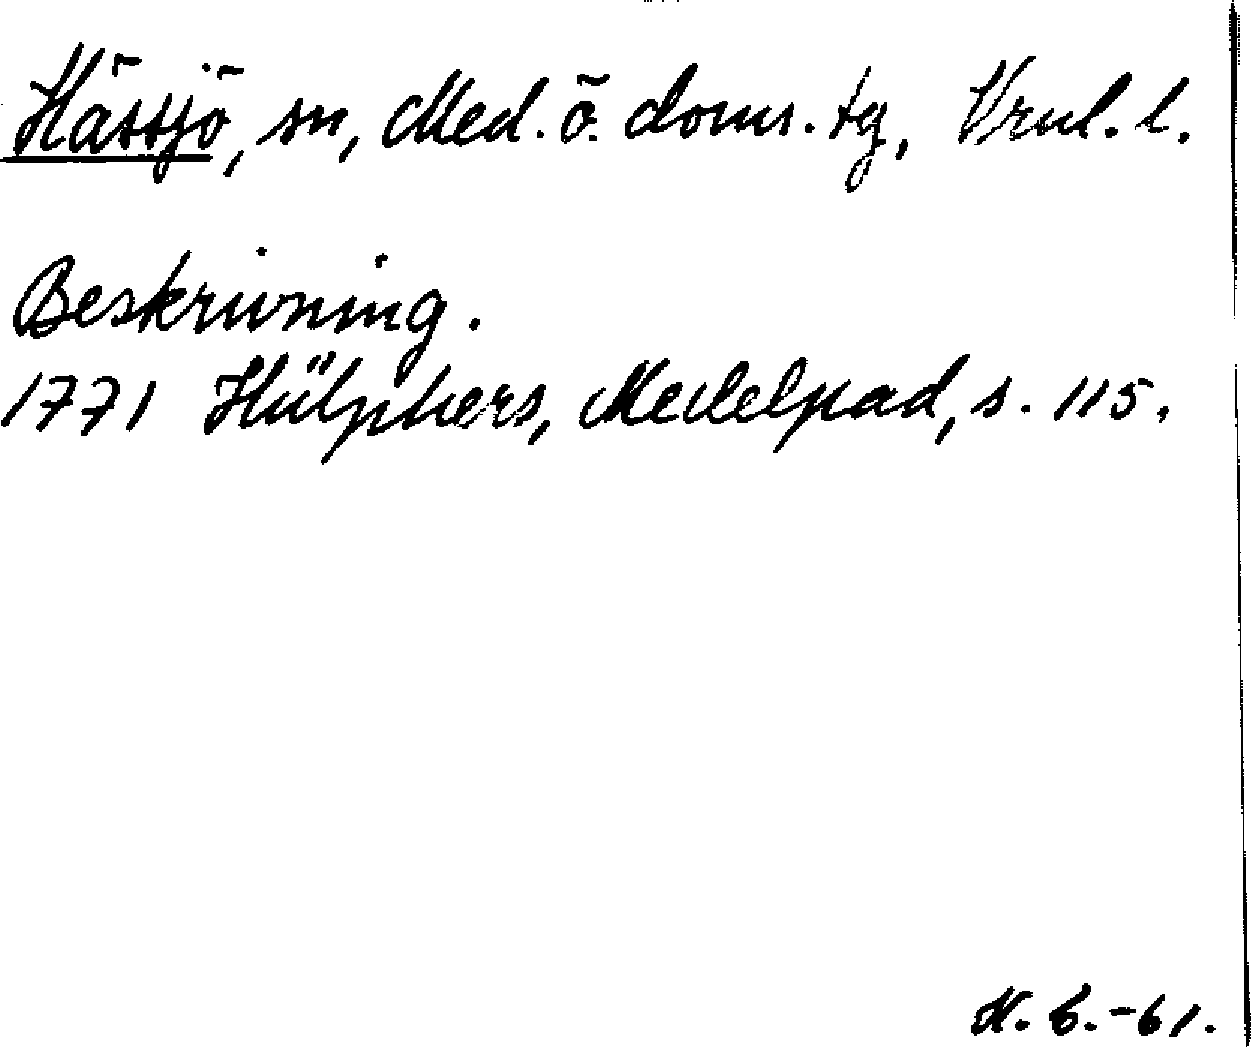 Hässjö, sn, Med. ö. doms. tg, Vrnl. l.
Beskrivning.
1771 Hülphers, Medelpad, s. 115.
K. G. -61.